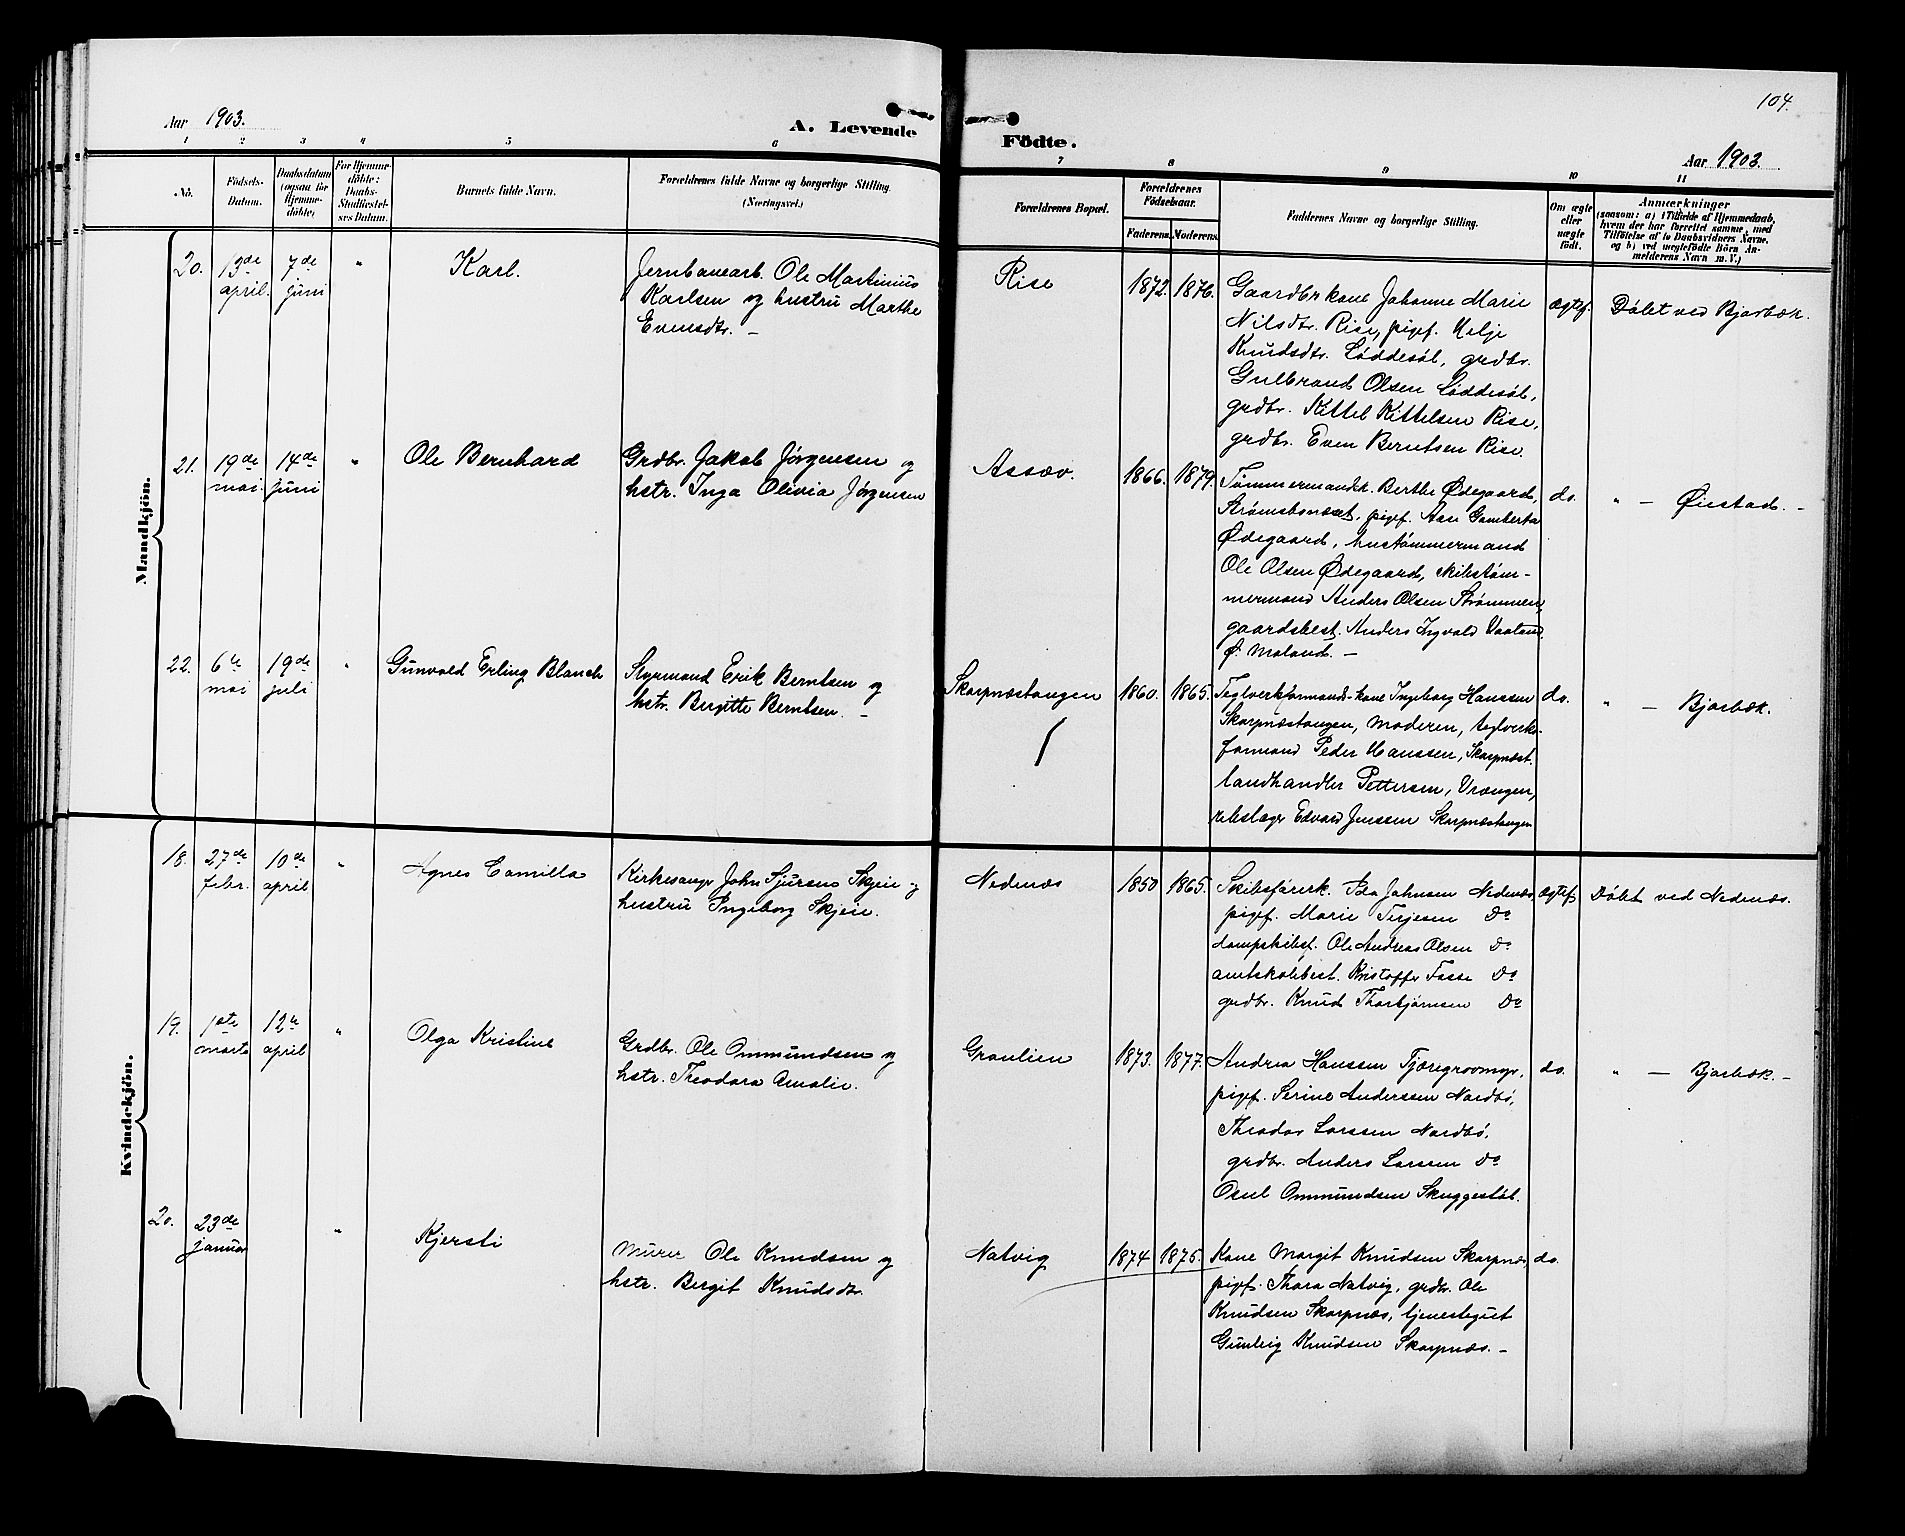 104.
Aar 1903.
A. Levende
Födte.
Aar 1903.
1 2 3 4 5 6 7 8 9 10 11
No.
Födsels-
Datum.
Daabsdatum
(ogsaa for
Hjemme-
döbte)
For Hjemme-
döbte:
Daabs-
Stadfæstel-
ses Datum.
Barnets fulde Navn.
Forældrenes fulde Navne og borgerlige Stilling.
(Næringsvei.)
Forældrenes Bopæl.
Forældrenes
Födselsaar.
Faderens. Moderens.
Faddernes Navne og borgerlige Stilling.
Om ægte
eller
uægte
födt.
Anmærkninger
(saasom: a) i Tilfælde af Hjemmedaab,
hvem der har forrettet samme, med
Tilföielse af to Daabsvidners Navne,
og b) ved uægtefödte Börn An-
melderens Navn m. V.)
Mandkjön.
20.
13de
april.
7de
juni
"
Karl.
Jernbanearb. Ole Martinius
Karlsen og hustru Marthe
Evensdtr. –
Rise
1872. 1876.
Gaardbrkone Johanne Marie
Nilsdtr. Rise, pigef. Helje
Knudsdtr. Løddesøl, grdbr.
Gulbrand Olsen Løddesøl,
grdbr. Kittel Kittelsen Rise,
grdbr. Even Berntsen Rise.
ægtef.
Døbt ved Bjorbæk.
21.
19de
mai.
14de
juni
"
Ole Bernhard
Grdbr. Jakob Jørgensen og
hstr. Inga Olivia Jørgensen
Assæv.
1866. 1879.
Tømmermandsk. Berthe Ødegaard,
Strømsbonæset, pigef. Aase Gamberta
Ødegaard, hustømmermand
Ole Olsen Ødegaard, skibstøm-
mermand Anders Olsen Strømmen,
gaardsbest. Anders Ingvald Vaaland
Ø. Moland. –
do.
" – Øiestad. –
22.
6te
mai
19de
juli
"
Gunvald Erling Blanch
Styrmand Erik Berntsen og
hstr. Birgitte Berntsen. –
Skarpnæstangen
1860. 1865.
Teglverksformands-kone Ingeborg Hanssen
Skarpnæstangen, moderen, teglverks-
formand Peder Hanssen, Skarpnæst.
landhandler Pettersen, Vrængen,
rebslager Edvard Jenssen Skarpnæstangen
do.
" – Bjorbæk.
Kvindekjön.
18.
27de
febr.
10de
april
"
Agnes Camilla
Kirkesanger John Sjursens Skjeie og
hustru Ingeborg Skjeie.
Nedenæs
1850 1865.
Skibsførerk. Ida Johnsen Nedenæs,
pigef. Marie Terjesen Do
dampskibsf. Ole Andreas Olsen Do
amtskolebest. Kristoffer Fasse Do
grdbr. Knud Thorbjørnsen Do
ægtef
Døbt ved Nedenæs.
19.
1ste
marts
12te
april
"
Olga Kristine
Grdbr. Ole Ommundsen og
hstr. Theodora Amalie.
Graulien
1873. 1877.
Andrea Hanssen Tjæregrovmyr,
pigef. Serine Anderssen Nordbø,
Theodor Larssen Nordbø,
grdbr. Anders Larssen Do
Osul Ommundsen Skuggestøl.
do.
" – Bjorbæk. –
20.
23de
januar
"
Kjersti
Murer Ole Knudsen og
hstr. Bergit Knudsdtr.
Natvig
1874 1875.
Kone Margit Knudsen Skarpnæs
pigef. Thora Natvig, grdbr. Ole
Knudsen Skarpnæs, tjenestegut
Gunleig Knudsen Skarpnæs. –
do.